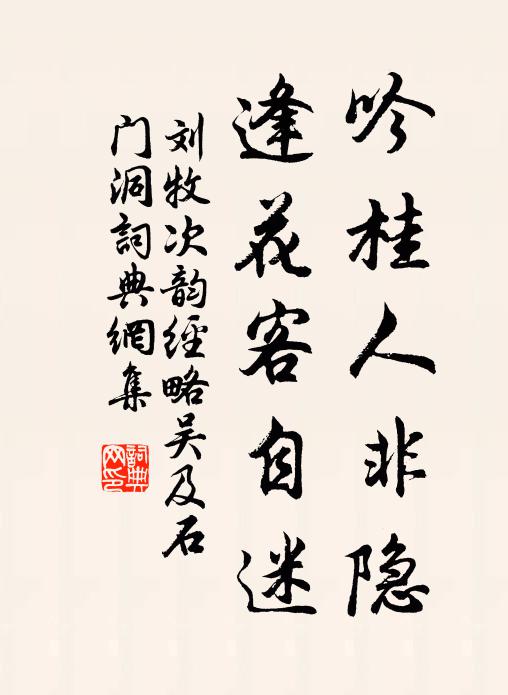 吟桂人非隐
逢花客自迷
刘牧次韵经略吴及石
门洞詞典網集
詞典网印